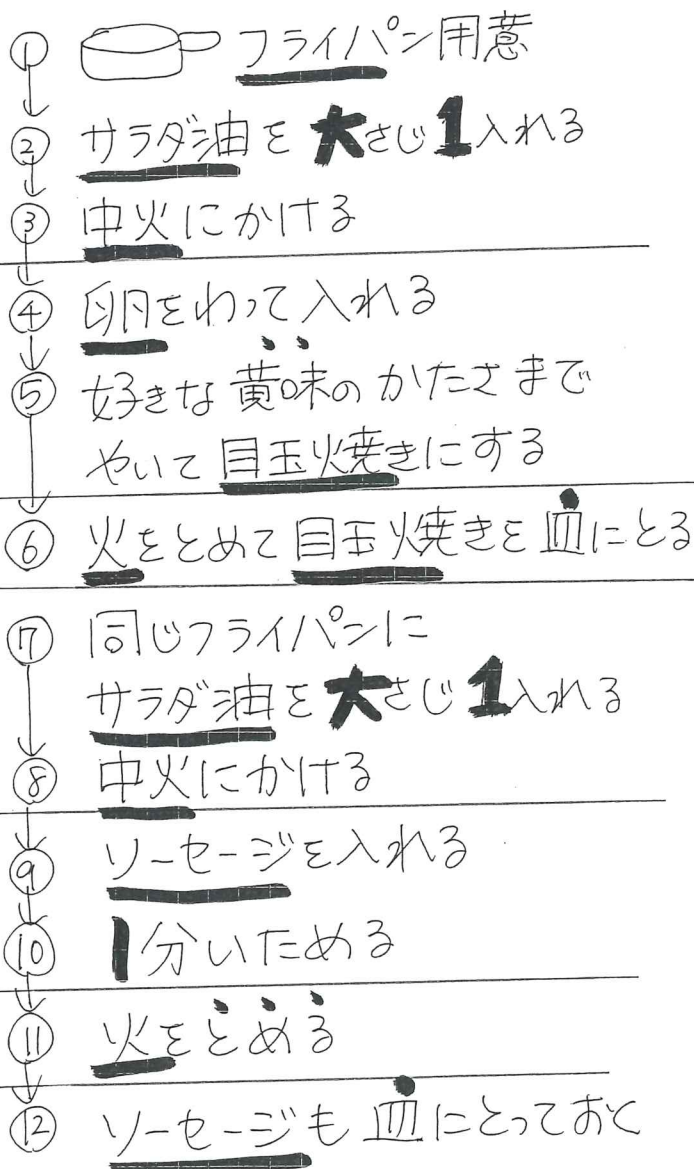 ① フライパン用意
② サラダ油を大さじ1入れる
③ 中火にかける
④ 卵をわって入れる
⑤ 好きな黄味のかたさまで
やいて目玉焼きにする
⑥ 火をとめて目玉焼きを皿にとる
⑦ 同じフライパンに
サラダ油を大さじ1入れる
⑧ 中火にかける
⑨ ソーセージを入れる
⑩ 1分いためる
⑪ 火をとめる
⑫ ソーセージも皿にとっておく